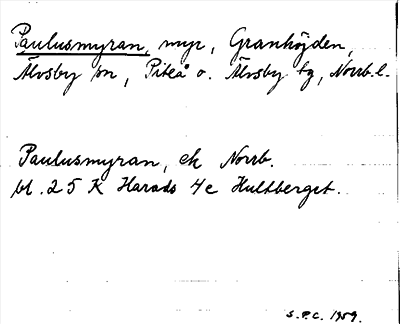 Paulusmyran, myr, Granhöjden,
Älvsby sn, Piteå o. Älvsby tg, Norrb.l.
Paulusmyran, ek Norrb.
bl. 25 K Harads 4c Hultberget.
S.P.C. 1959.